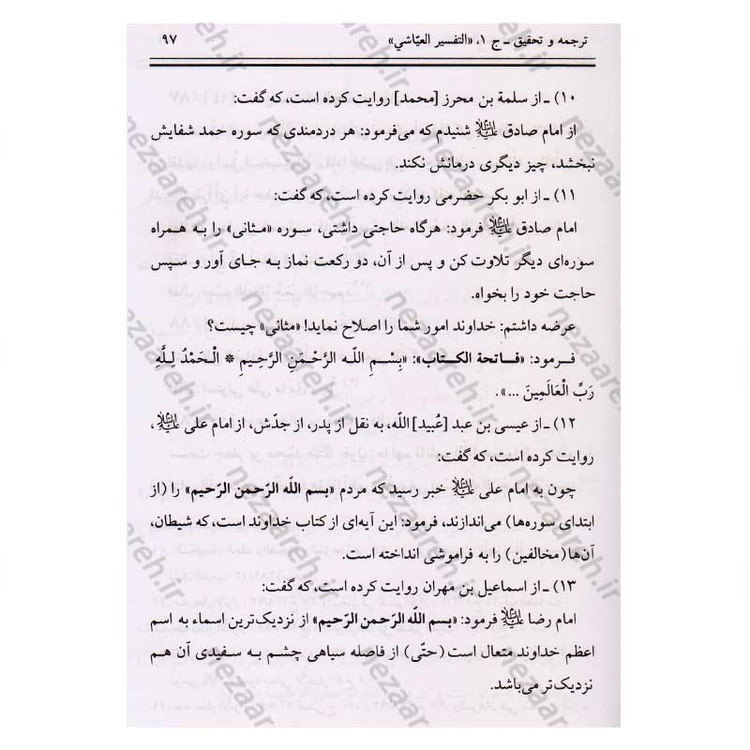 ترجمه و تحقیق ـ ج ۱، «التفسیر العیّاشي» ۹۷
۱۰) ـ از سلمة بن محرز [محمد] روایت کرده است، که گفت:
از امام صادق علیه السلام شنیدم که می‌فرمود: هر دردمندی که سوره حمد شفایش
نبخشد، چیز دیگری درمانش نکند.
۱۱) ـ از ابو بکر حضرمی روایت کرده است، که گفت:
امام صادق علیه السلام فرمود: هرگاه حاجتی داشتی، سوره «مثانی» را به همراه
سوره‌ای دیگر تلاوت کن و پس از آن، دو رکعت نماز به جای آور و سپس
حاجت خود را بخواه.
عرضه داشتم: خداوند امور شما را اصلاح نماید! «مثانی» چیست؟
فرمود: «فاتحة الکتاب»: «بِسْمِ اللّه الرَّحْمَنِ الرَّحِیمِ * الْحَمْدُ لِلَّهِ
رَبِّ الْعَالَمِینَ ...».
۱۲) ـ از عیسی بن عبد [عُبید] اللّه، به نقل از پدر، از جدّش، از امام علی علیه السلام،
روایت کرده است، که گفت:
چون به امام علی علیه السلام خبر رسید که مردم «بسم اللّه الرّحمن الرّحیم» را (از
ابتدای سوره‌ها) می‌اندازند، فرمود: این آیه‌ای از کتاب خداوند است، که شیطان،
آن‌ها (مخالفین) را به فراموشی انداخته است.
۱۳) ـ از اسماعیل بن مهران روایت کرده است، که گفت:
امام رضا علیه السلام فرمود: «بسم اللّه الرّحمن الرّحیم» از نزدیک‌ترین اسماء به اسم
اعظم خداوند متعال است (حتّی) از فاصله سیاهی چشم به سفیدی آن هم
نزدیک‌تر می‌باشد.
nezaareh.ir